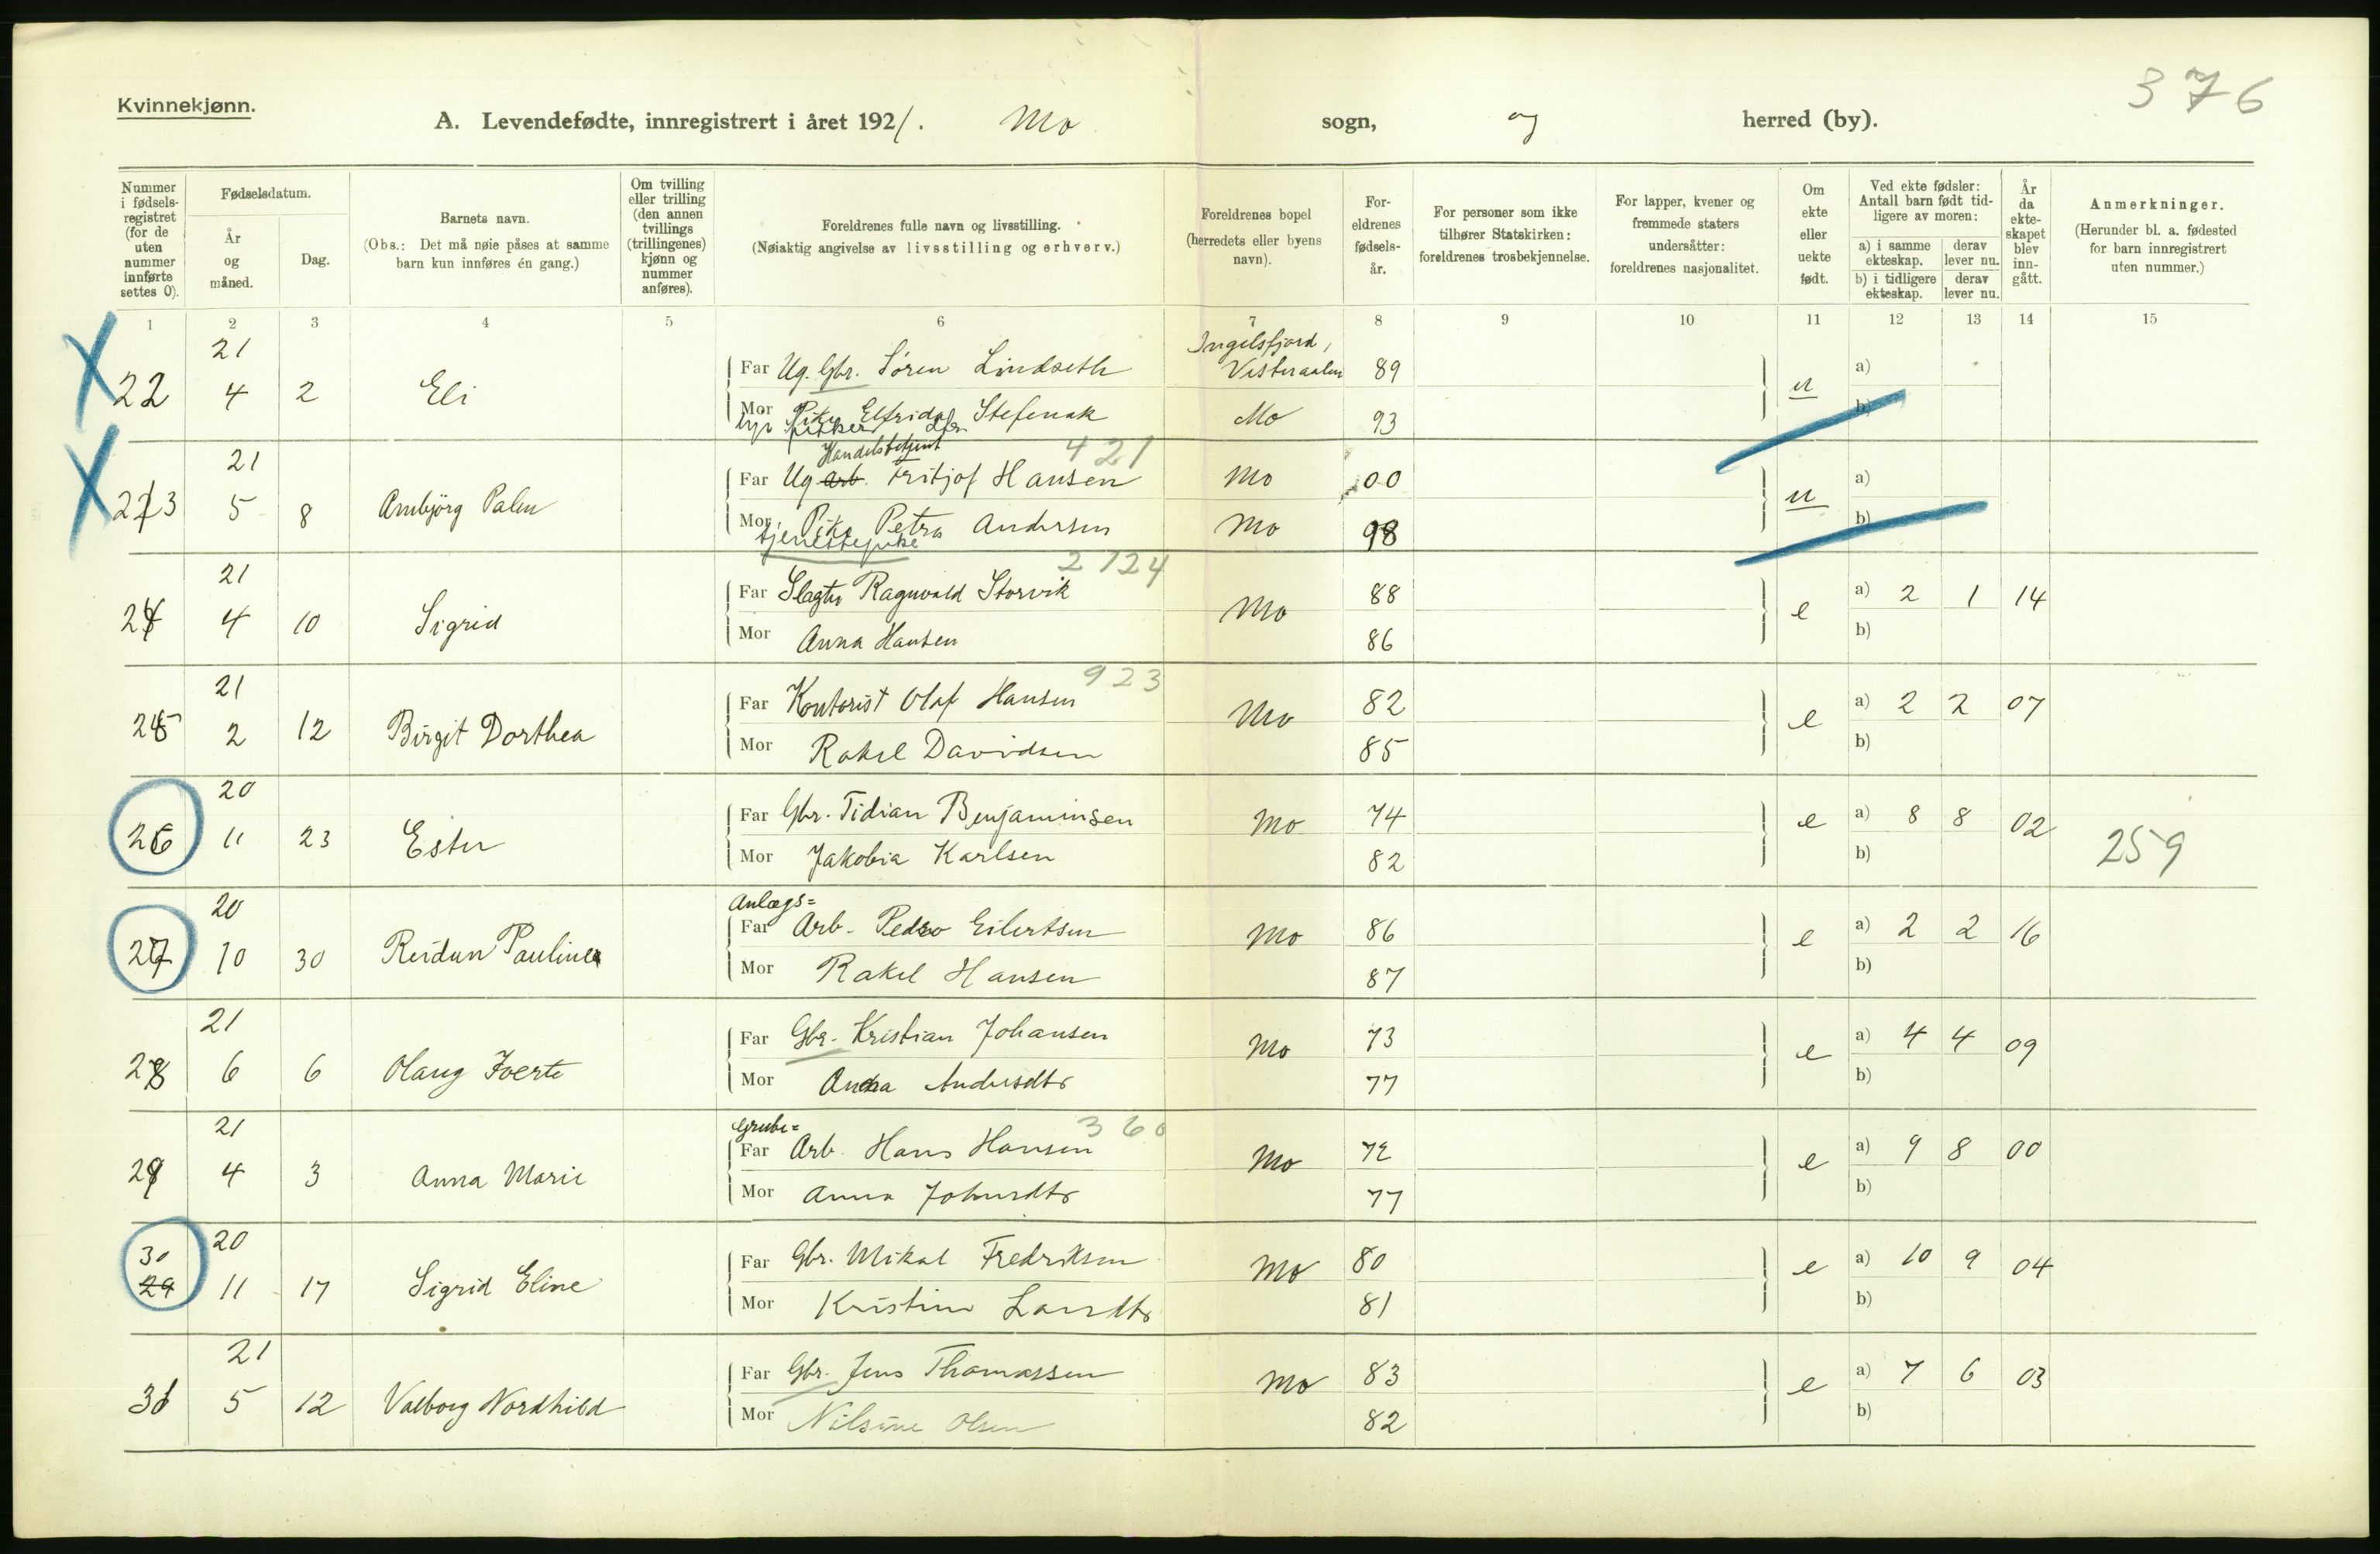 376
Kvinnekjønn.
A. Levendefødte, innregistrert i året 1921. Mo sogn, og herred (by).
Nummer i fødsels-registret (for de uten nummer innførte settes 0).
Fødselsdatum.
År og måned.
Dag.
Barnets navn.
(Obs.: Det må nøie påses at samme barn kun innføres én gang.)
Om tvilling eller trilling (den annen tvillings (trillingenes) kjønn og nummer anføres).
Foreldrenes fulle navn og livsstilling.
(Nøiaktig angivelse av livsstilling og erhverv.)
Foreldrenes bopel (herredets eller byens navn).
For-eldrenes fødsels-år.
For personer som ikke tilhører Statskirken: foreldrenes trosbekjennelse.
For lapper, kvener og fremmede staters undersåtter: foreldrenes nasjonalitet.
Om ekte eller uekte født.
Ved ekte fødsler: Antall barn født tid-ligere av moren:
a) i samme ekteskap.
derav lever nu.
b) i tidligere ekteskap.
derav lever nu.
År da ekte-skapet blev inn-gått.
Anmerkninger.
(Herunder bl. a. fødested for barn innregistrert uten nummer.)
1 2 3 4 5 6 7 8 9 10 11 12 13 14 15
21
22 4 2 Eli
Far Ug. Gbr. Søren Lindseth
Ingelsfjord, Vesteraalen 89
Mor Pike Elfrida Stefenak
Mo 93
u a) b)
21
23 5 8 Arnbjörg Palm
421
Handelsbetjent
Far Ug arb. Fritjof Hansen Mo 00
Mor Pike Petra Andersen Mo 98
tjenestepike
u a) b)
21
24 4 10 Sigrid
2124
Far Slagter Ragnvald Storvik Mo 88
Mor Anna Hansen 86
e a) 2 1 14
b)
21
25 2 12 Birgit Dorthea
923
Far Kontorist Olaf Hansen Mo 82
Mor Rakel Davidsen 85
e a) 2 2 07
b)
20
26 11 23 Ester
Far Gbr. Tidian Benjaminsen Mo 74
Mor Jakobia Karlsen 82
e a) 8 8 02
b)
259
20
27 10 30 Reidun Pauline
Anlægs=
Far Arb. Pedro Eilertsen Mo 86
Mor Rakel Hansen 87
e a) 2 2 16
b)
21
28 6 6 Olaug Iverte
Far Gbr. Kristian Johansen Mo 73
Mor Anna Andersdtr 77
e a) 4 4 09
b)
21
29 4 3 Anna Marie
Grube=
360
Far Arb. Hans Hansen Mo 72
Mor Anna Johnsdtr 77
e a) 9 8 00
b)
30 20
29 11 17 Sigrid Eline
Far Gbr. Mikal Fredriksen Mo 80
Mor Kristine Larsdtr 81
e a) 10 9 04
b)
21
31 5 12 Valborg Nordhild
Far Gbr. Jens Thomassen Mo 83
Mor Nilsine Olsen 82
e a) 7 6 03
b)